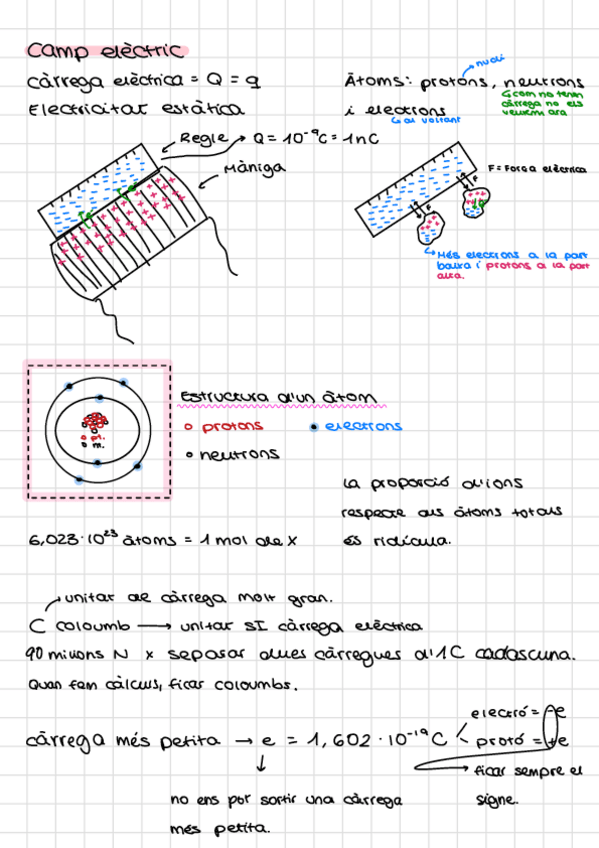 Camp elèctric
càrrega elèctrica = Q = q
Electricitat estàtica
Àtoms: protons, neutrons
nucli
com no tenen
càrrega no els
veurem ara
i electrons
al voltant
Regle
Q = 10⁻⁹C = 1nC
Màniga
F = Força elèctrica
F
F
Més electrons a la part
baixa i protons a la part
alta.
pt.
n.
Estructura d'un àtom
protons
electrons
neutrons
La proporció d'ions
respecte als àtoms totals
és ridícula.
6,023·10²³ àtoms = 1 mol de X
unitat de càrrega molt gran.
C coloumb → unitat SI càrrega elèctrica
90 milions N x separar dues càrregues d'1C cadascuna.
Quan fem càlculs, ficar coloumbs.
càrrega més petita → e = 1,602·10⁻¹⁹C
electró = -e
protó = +e
ficar sempre el
signe.
no ens pot sortir una càrrega
més petita.